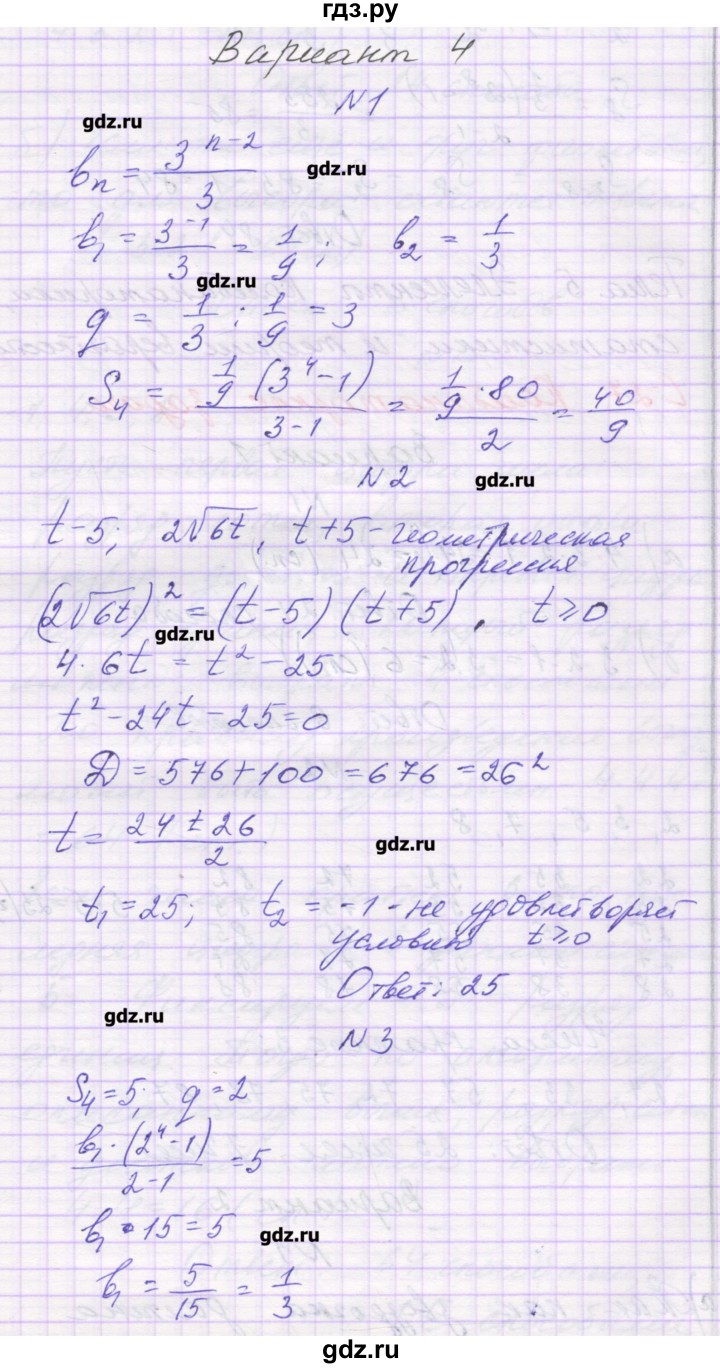 гдз.ру
Вариант 4
N1
gdz.ru
bₙ = 3ⁿ⁻²/3
gdz.ru
b₁ = 3⁻¹/3 = 1/9; b₂ = 1/3
gdz.ru
q = 1/3 : 1/9 = 3
S₄ = 1/9 (3⁴-1)/3-1 = 1/9 · 80/2 = 40/9
N2
gdz.ru
t-5; 2√6t, t+5 - геометрическая
прогрессия
(2√6t)² = (t-5)(t+5), t≥0
gdz.ru
4·6t = t²-25
t²-24t-25=0
Д = 576+100 = 676 = 26²
t = 24±26/2
gdz.ru
t₁ = 25; t₂ = -1 - не удовлетворяет
условию t≥0
Ответ: 25
gdz.ru
N3
S₄=5; q=2
b₁·(2⁴-1)/2-1 = 5
b₁·15=5
gdz.ru
b₁ = 5/15 = 1/3
гдз.ру